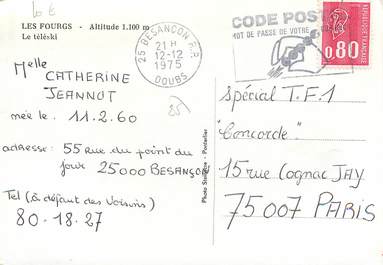 LES FOURGS - Altitude 1.100 m
Le téléski
Melle CATHERINE
JEANNOT
née le. 11.2.60
adresse: 55 Rue du point du
jour 25000 BESANÇON
Tel (à défaut des voisins)
80.18.27
25 BESANCON R.P.
21 H
12-12
1975
DOUBS
CODE POS
MOT DE PASSE DE VOTRE
REPUBLIQUE FRANCAISE
0,80
85
Photo Stainacre - Pontarlier
Spécial T.F.1
"Concorde"
15 rue Cognac JAY
75007 PARIS